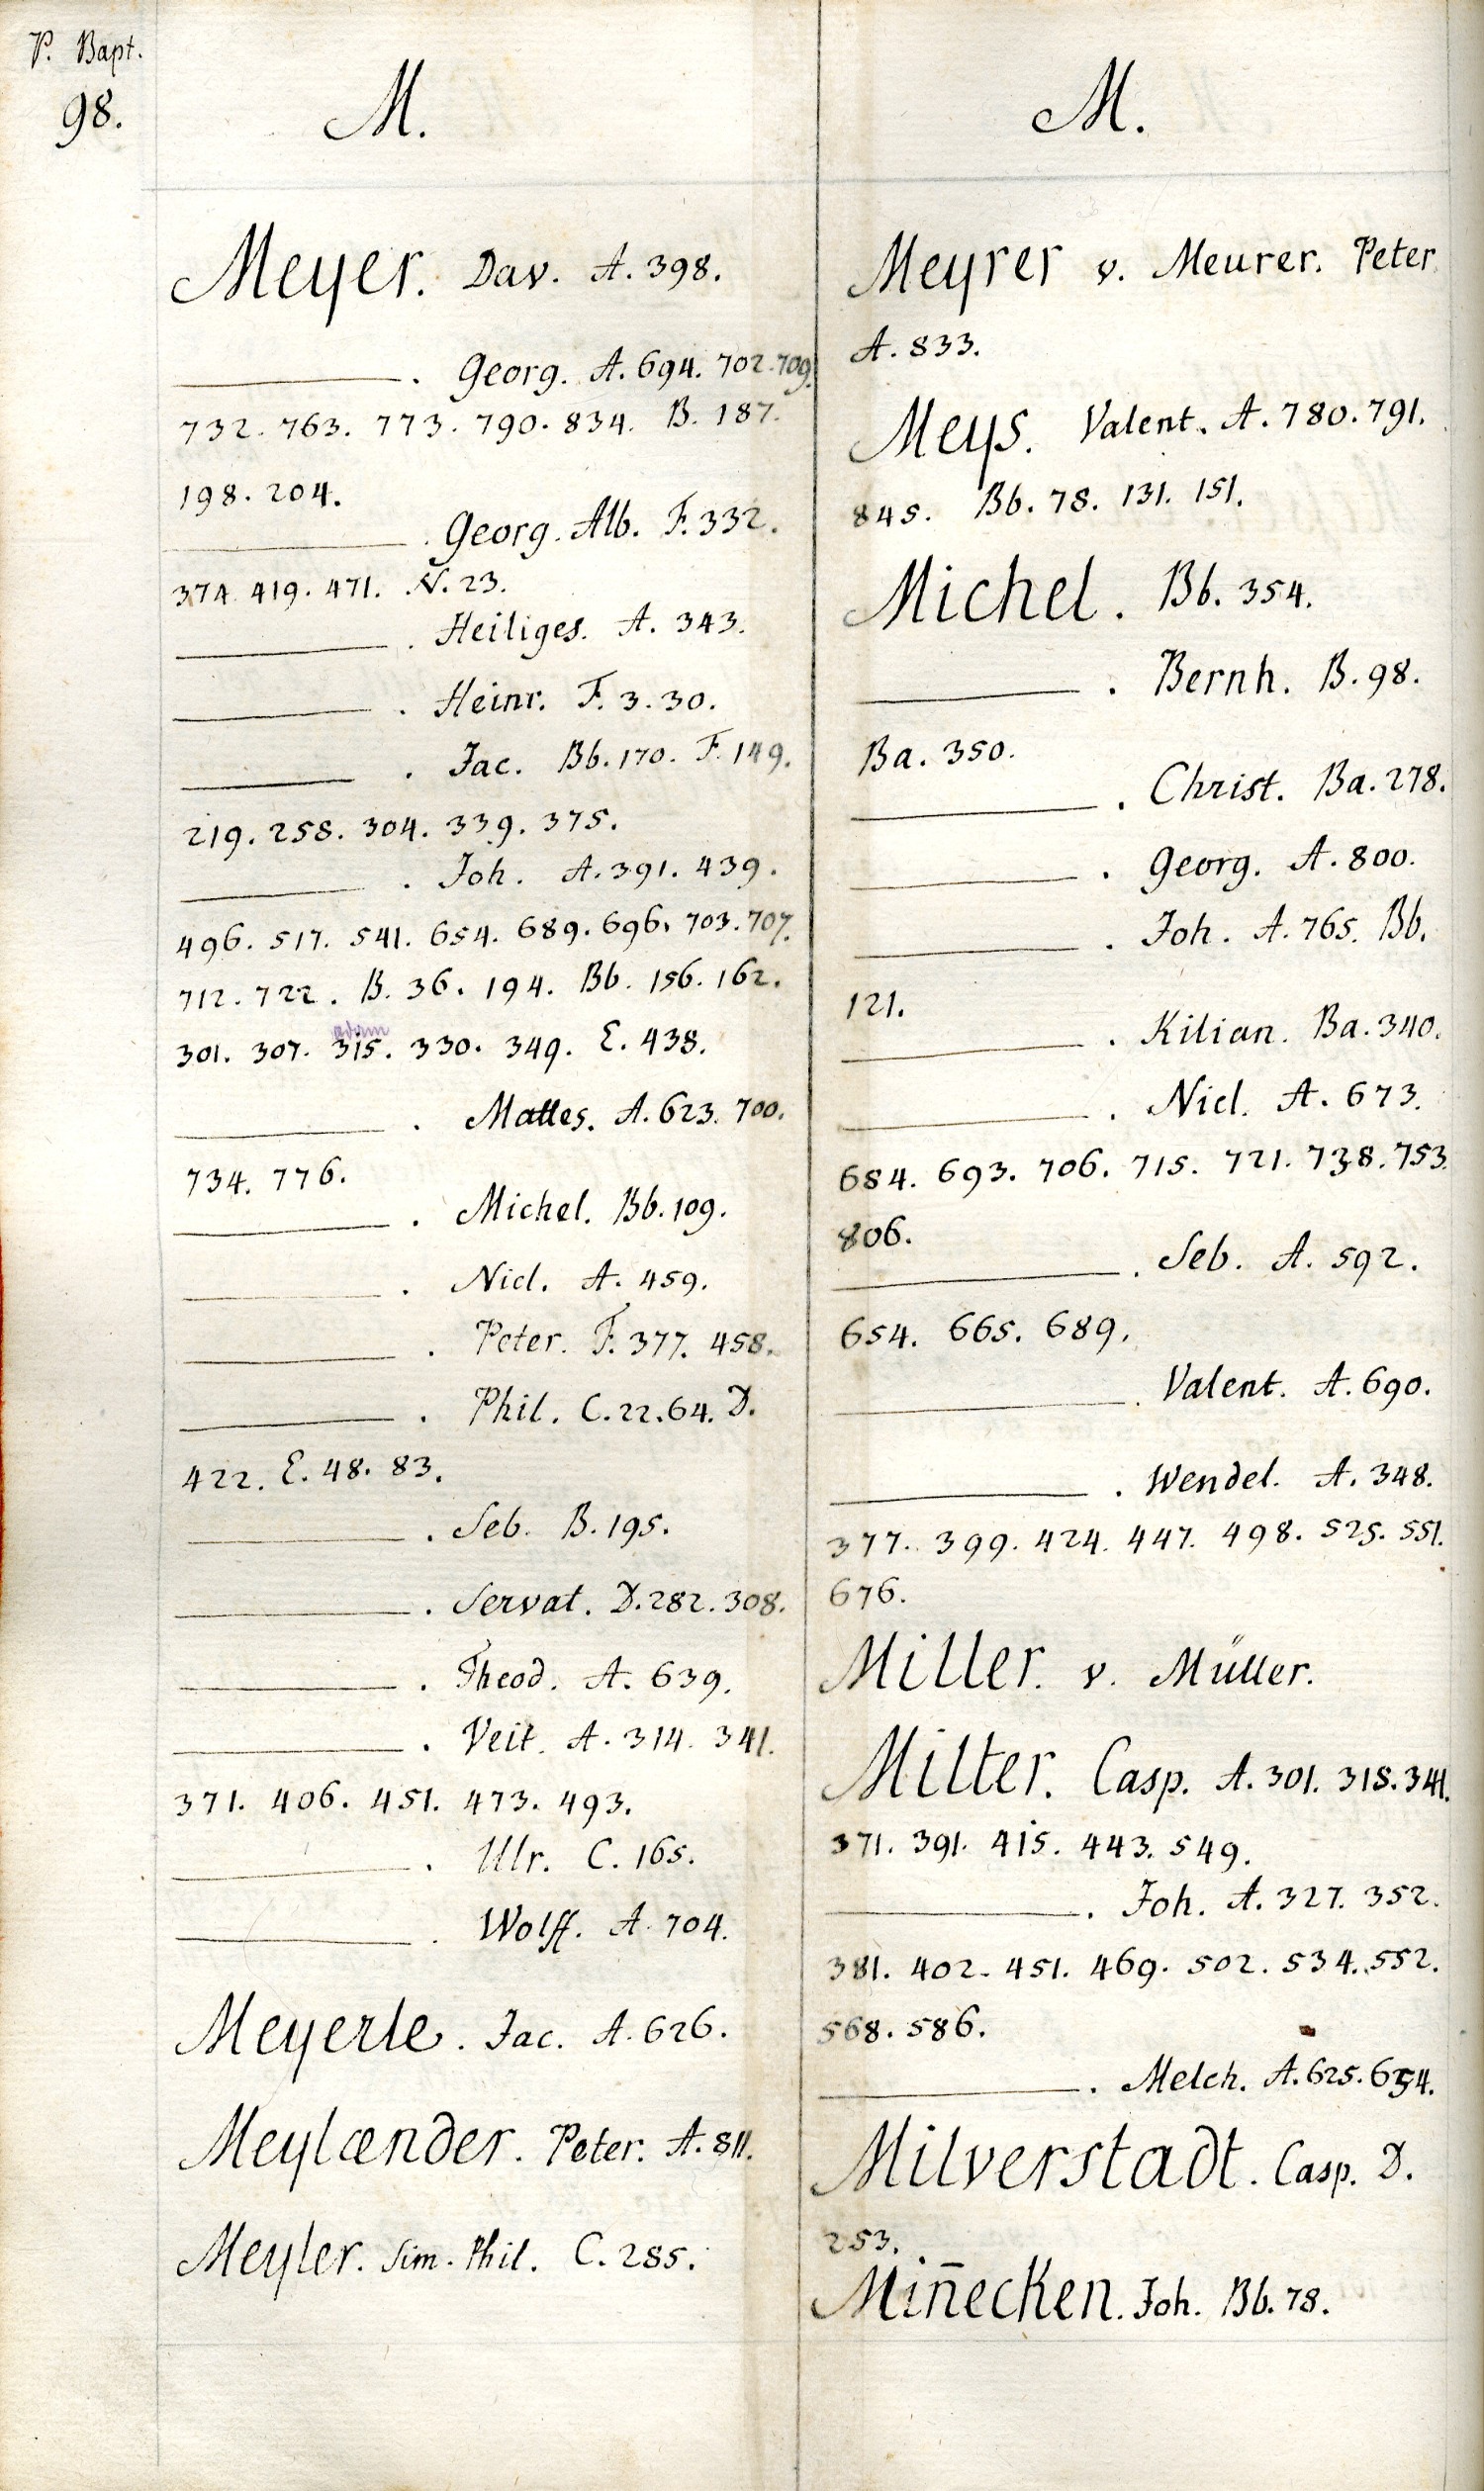 P. Bapt.
98.
M.
Meyer. Dav. A. 398.
. Georg. A. 694. 702. 709.
732. 763. 773. 790. 834. B. 187.
198. 204.
. Georg. Alb. F. 332.
374. 419. 471. N. 23.
. Heiliges. A. 343.
. Heinr. F. 3. 30.
. Jac. Bb. 170. F. 149.
219. 258. 304. 339. 375.
. Joh. A. 391. 439.
496. 517. 541. 654. 689. 696. 703. 707.
712. 722. B. 36. 194. Bb. 156. 162.
adam
301. 307. 315. 330. 349. E. 438.
. Mattes. A. 623. 700.
734. 776.
. Michel. Bb. 109.
. Nicl. A. 459.
. Peter. F. 377. 458.
. Phil. C. 22. 64. D.
422. E. 48. 83.
. Seb. B. 195.
. Servat. D. 282. 308.
. Theod. A. 639.
. Veit. A. 314. 341.
371. 406. 451. 473. 493.
. Ulr. C. 165.
. Wolff. A. 704.
Meyerle. Jac. A. 626.
Meylænder. Peter. A. 811.
Meyler. Sim. Phil. C. 285.
M.
Meyrer v. Meurer. Peter
A. 833.
Meys. Valent. A. 780. 791.
845. Bb. 78. 131. 151.
Michel. Bb. 354.
. Bernh. B. 98.
Ba. 350.
. Christ. Ba. 278.
. Georg. A. 800.
. Joh. A. 765. Bb.
121.
. Kilian. Ba. 340.
. Nicl. A. 673.
684. 693. 706. 715. 721. 738. 753.
806.
. Seb. A. 592.
654. 665. 689.
. Valent. A. 690.
. Wendel. A. 348.
377. 399. 424. 447. 498. 525. 551.
676.
Miller. v. Müller.
Milter. Casp. A. 301. 318. 341.
371. 391. 415. 443. 549.
. Joh. A. 327. 352.
381. 402. 451. 469. 502. 534. 552.
568. 586.
. Melch. A. 625. 654.
Milverstadt. Casp. D.
253.
Min̄ecken. Joh. Bb. 78.